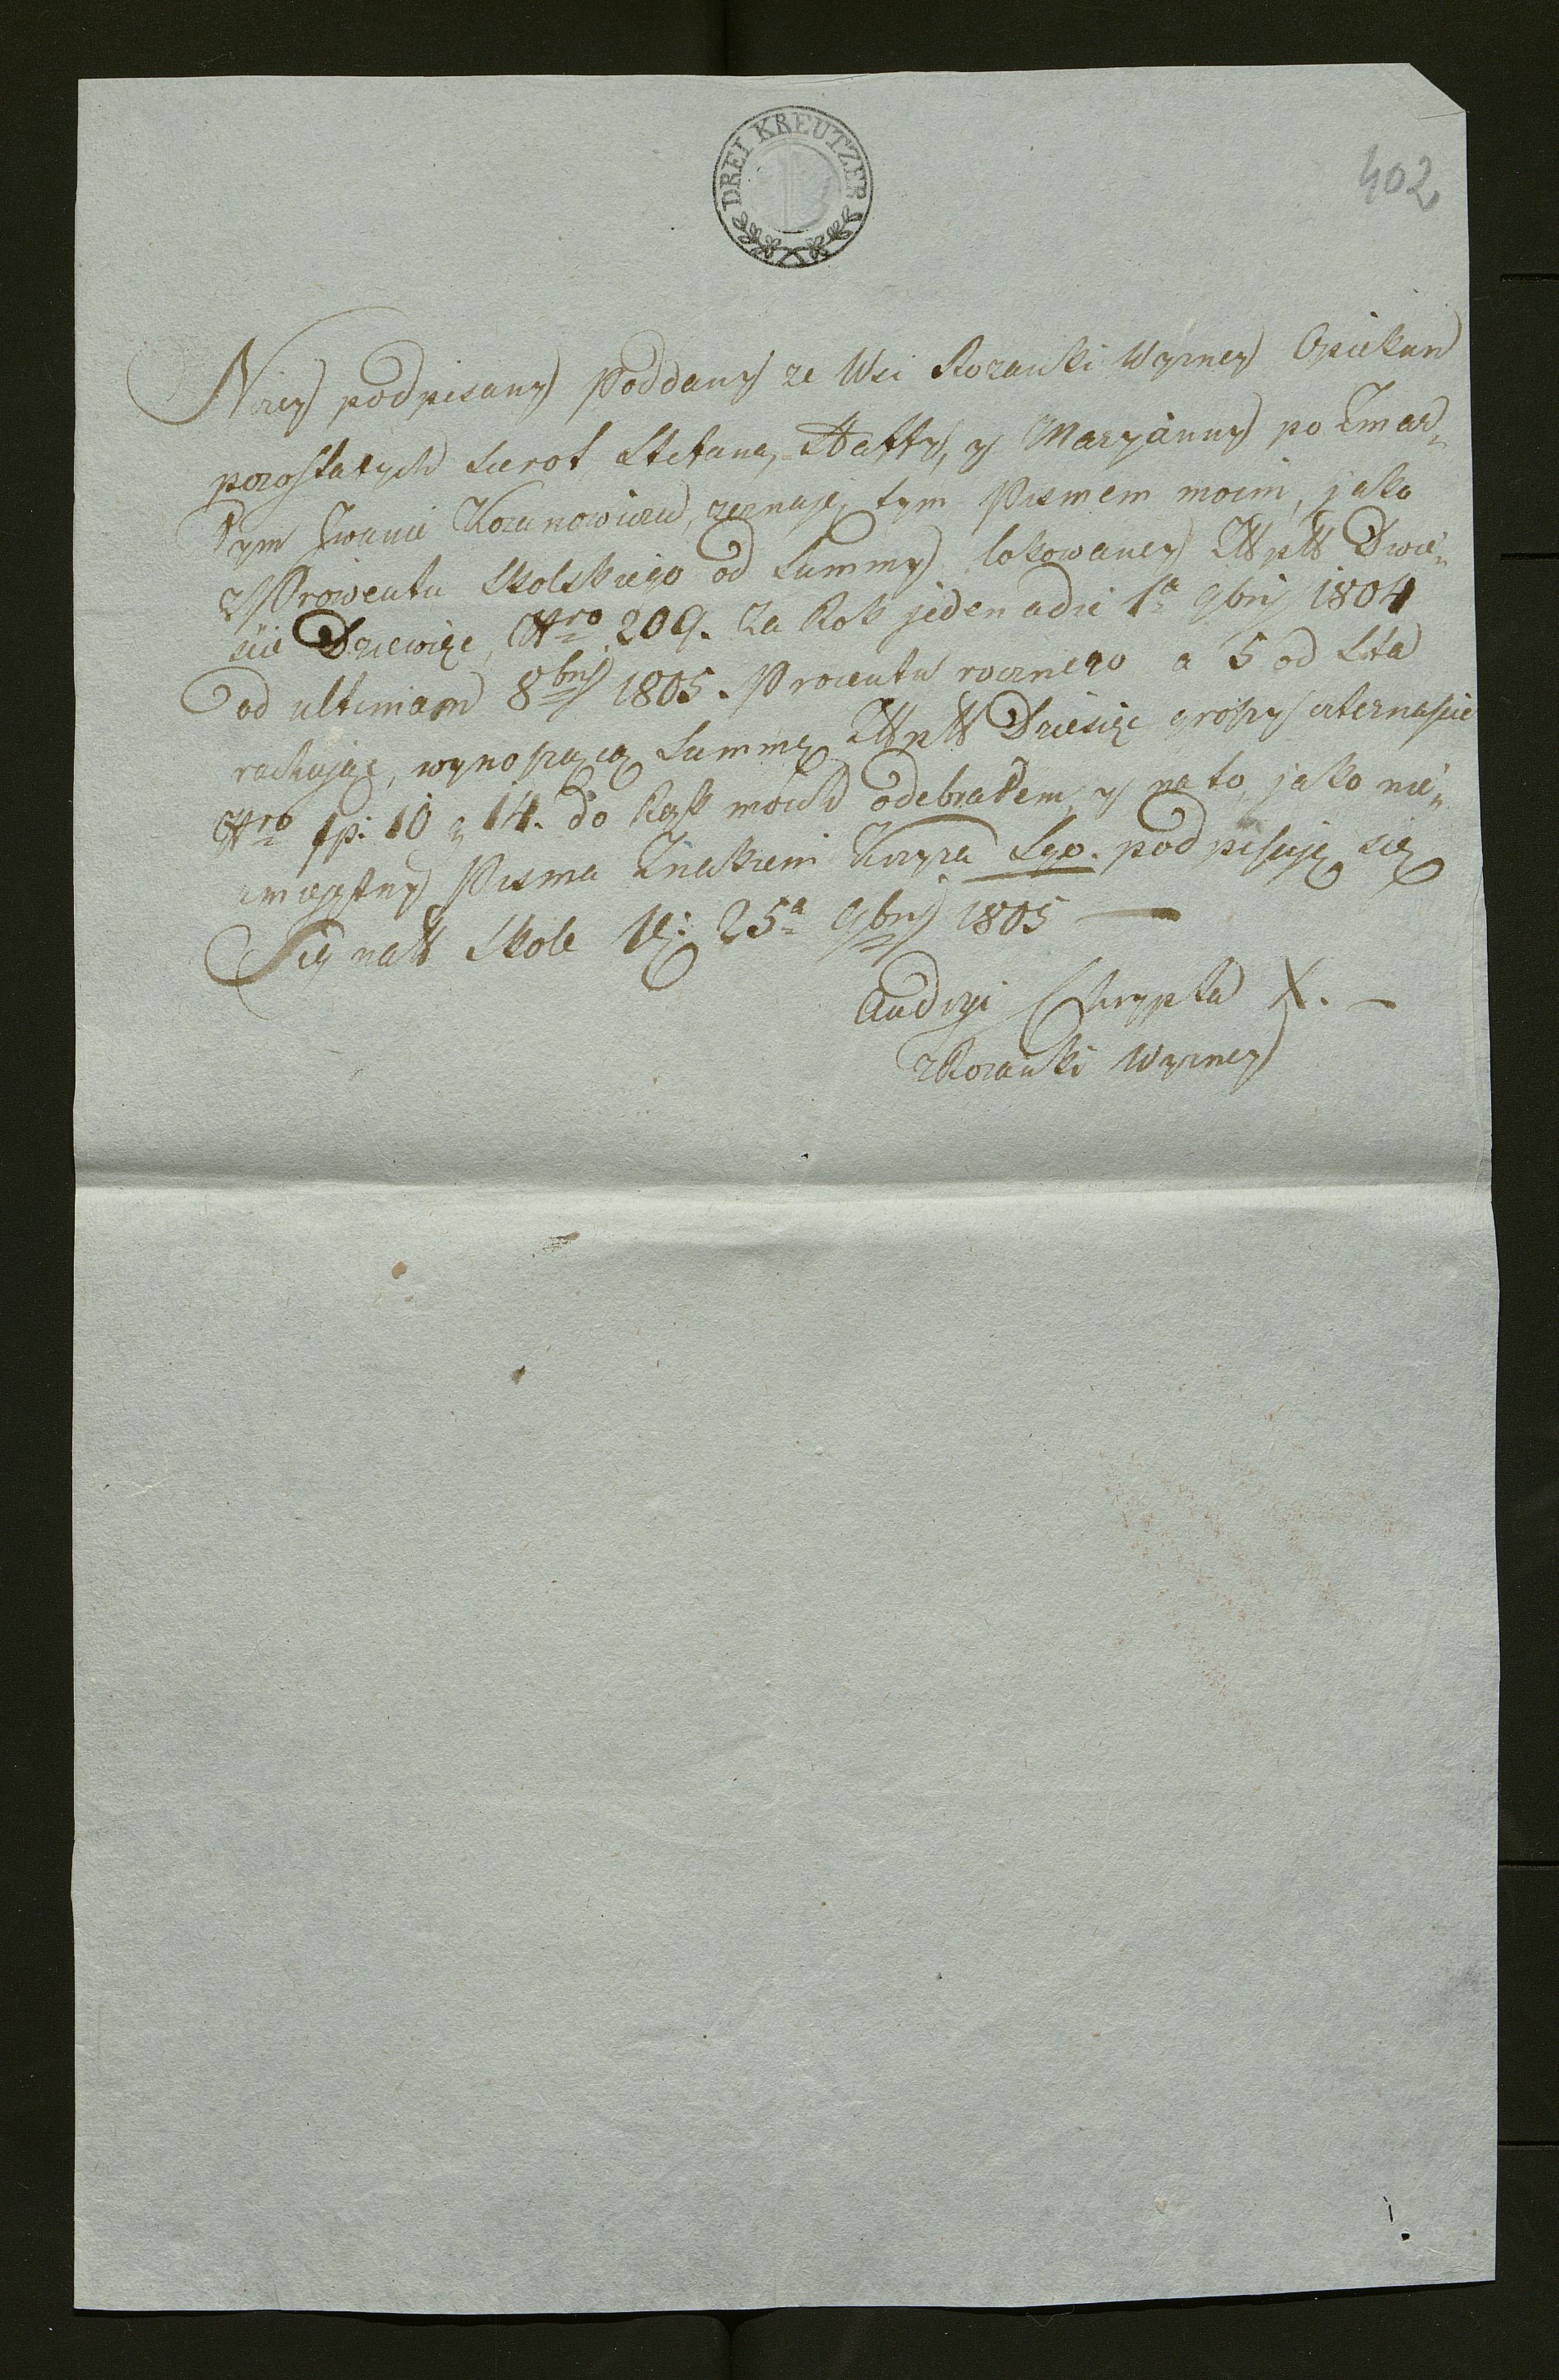 DREI KREUTZER
402
Niżey podpisany Poddany ze Wsi Rozanki Wyżney Opiekun
pozostałych Sierot Stefana, Hatty, y Maryanny po Zmar„
łym Iwanie Kozanowiczu, zeznaję tym Pismem moim, jako
z Prowentu Skolskiego od Summy lokowaney Złpll Dwie„
ście Dziewięc, Nro 209. Za Rok jeden a die 1a 9bris 1804
ad ultimam 8bris 1805. Procentu rocznego a 5 od Sta
rachując, wynoszącą Summę Złpll Dziesięc groszy czternascie
Nro fp: 10 g 14. do Rąk moich odebrałem, y na to, jako nie„
umiejętny Pisma Znakiem Krzyza Sgo. podpisuję się
Signatt Skole d: 25a 9bris 1805
Andrzej Chrypta X. —
z Rozanki Wyzney